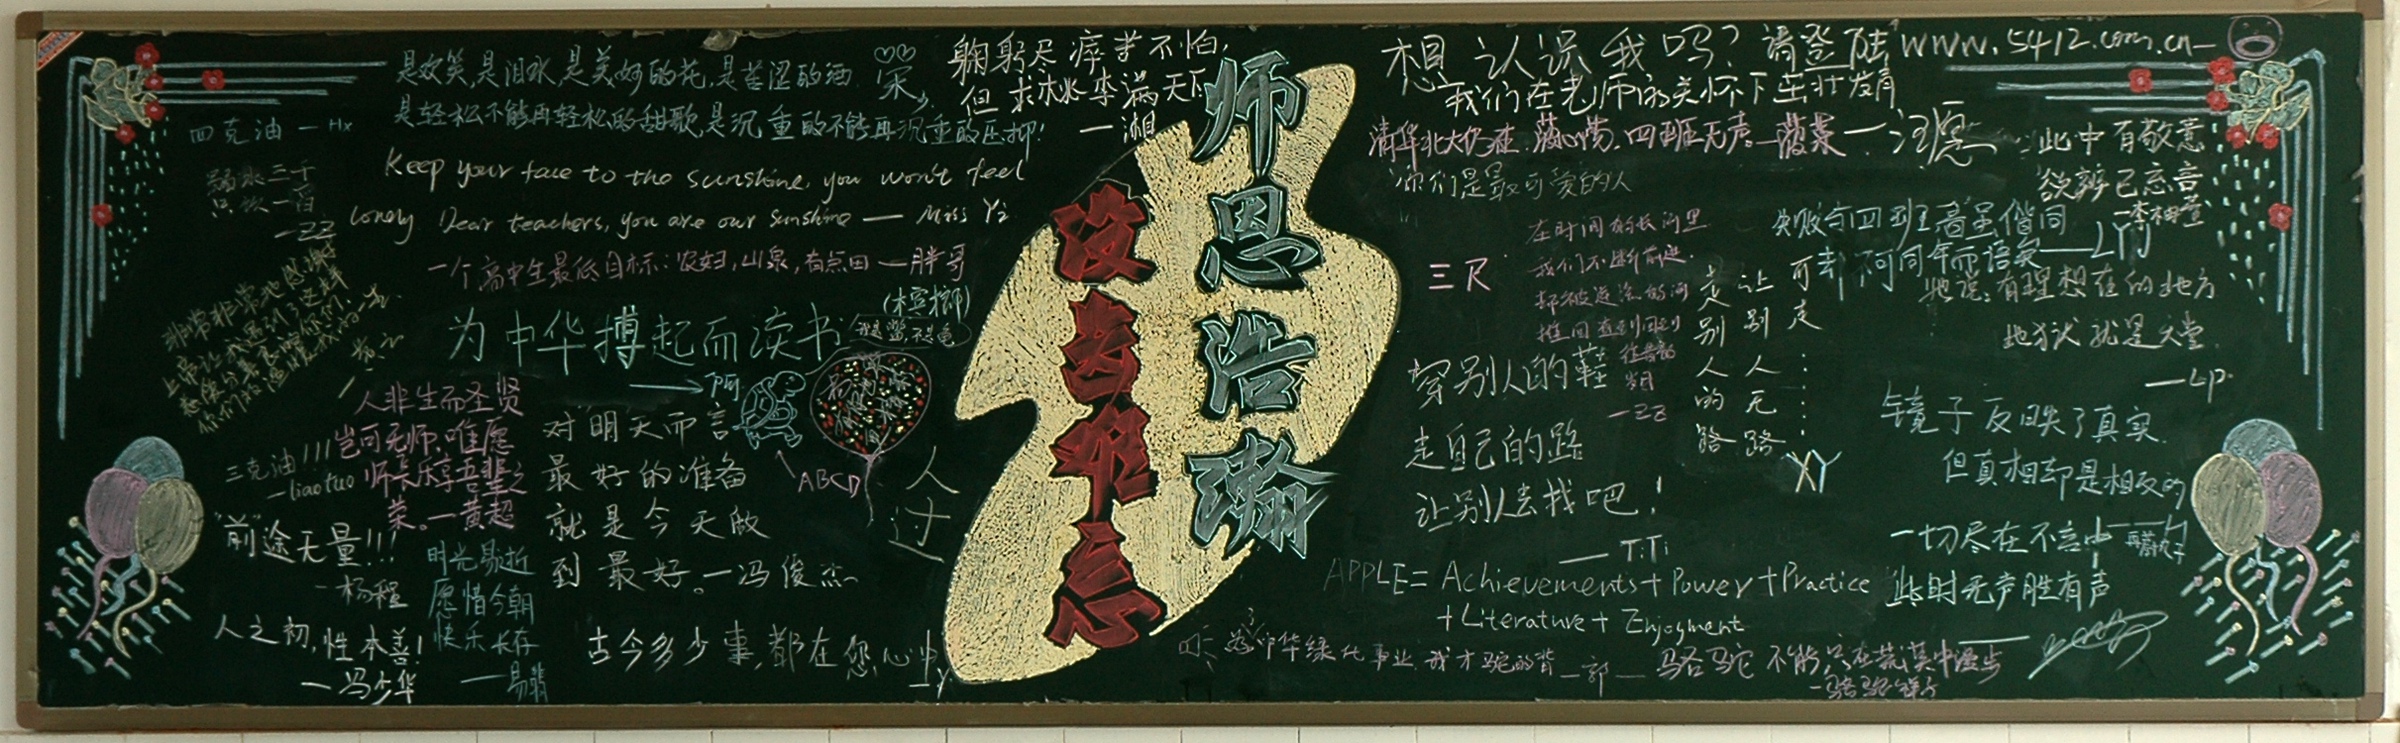 是欢笑,是泪水,是美好的花,是苦涩的酒
是轻松不能再轻松的甜歌,是沉重的不能再沉重的压抑!
四克油 — Hx
弱水三千
只饮一百
—ZZ
Keep your face to the sunshine, you won't feel
lonely Dear teachers, you are our sunshine — Miss Yi
一个高中生最低目标:农妇,山泉,有点田 — 胖哥
为中华搏起而读书
(槟榔)
非常非常地感谢
上帝让我遇到了这样
人非生而圣贤
岂可无师,唯愿
师长乐享吾辈之
荣。—黄超
三克油!!!
—liaotuo
"前"途无量!!!
—杨程
人之初,性本善!
—冯少华
时光易逝
愿惜今朝
快乐长存
—易翡
对明天而言
最好的准备
就是今天做
到最好。—冯俊杰
ABCD
古今多少事,都在您心中
—Y
人过
躬躬尽瘁苦不怕,
但求桃李满天下
—湘
师恩浩瀚
没齿难忘
想认识我吗?请登陆www.5412.com.cn
我们在老师的关怀下茁壮发育
清华北大仍在,四班无声。—菠菜
—汪愿
你们是最可爱的人
此中有敬意
欲辨已忘言
三尺
在时间的长河里
我们不断前进
—ZZ
失败与四班看虽偕同
却不可同年而语矣——LYJ
他说:有理想在的地方
地狱就是天堂
—LP
走别人的路
让别人无路
可走……
XY
穿别人的鞋
走自己的路
让别人去找吧!
—TiTi
镜子反映了真实
但真相却是相反的
一切尽在不言中
此时无声胜有声
APPLE=Achievements+Power+Practice
+Literature+Enjoyment
为中华绿化事业,我才驼的背—郭
骆驼不能只在荒漠中漫步
—骆驼祥子